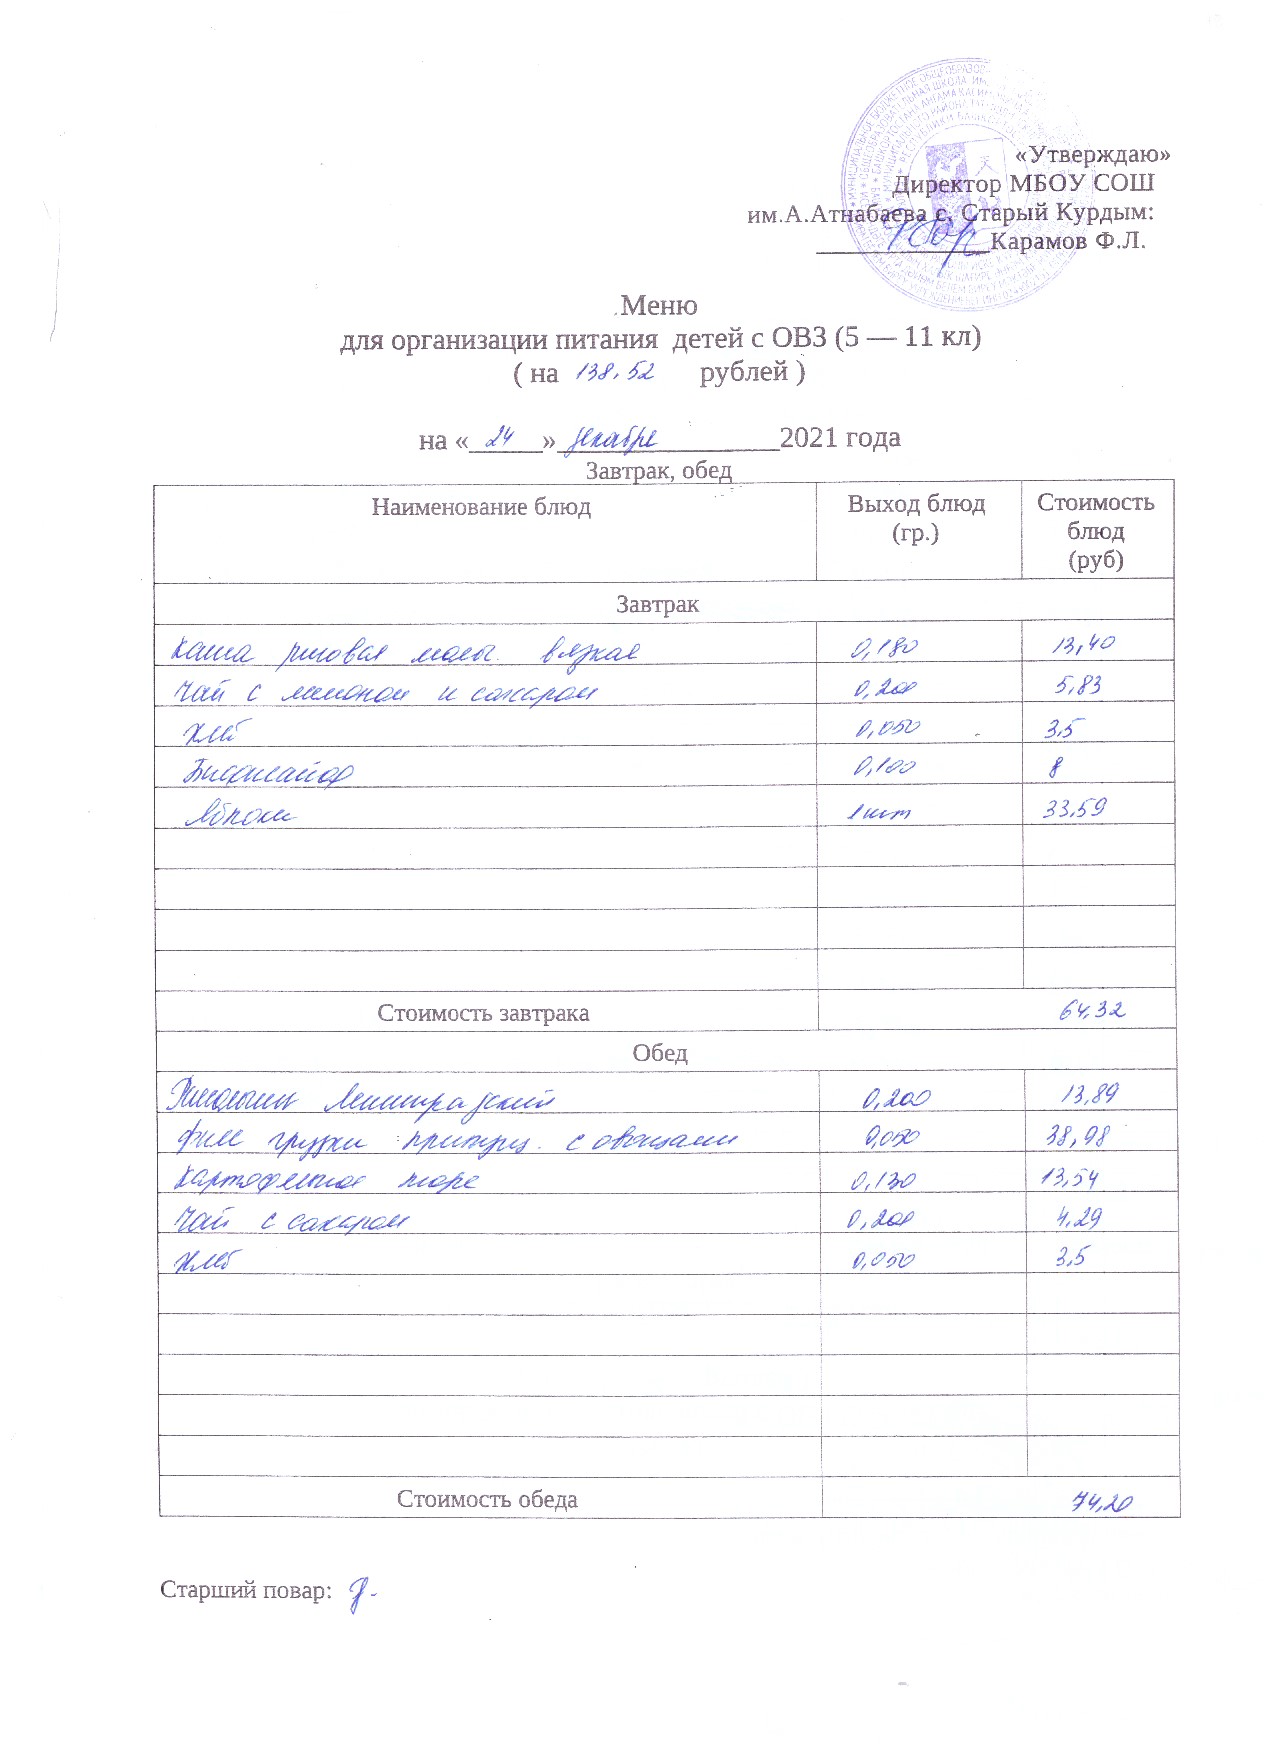 «Утверждаю»
Директор МБОУ СОШ
им.А.Атнабаева с. Старый Курдым:
Карамов Ф.Л.
Меню
для организации питания детей с ОВЗ (5 — 11 кл)
( на 138,52 рублей )
на « 24 » декабря 2021 года
Завтрак, обед
Наименование блюд Выход блюд (гр.) Стоимость блюд (руб)
Завтрак
Каша рисовая молоч. вязкая 0,180 13,40
Чай с лимоном и сахаром 0,200 5,83
Хлеб 0,050 3,5
Бифилайф 0,100 8
Яблоки 1 шт 33,59
Стоимость завтрака 64,32
Обед
Ленинградский 0,200 13,89
филе грудки припущ. с овощами 0,050 38,98
Картофельное пюре 0,130 13,54
Чай с сахаром 0,200 4,29
Хлеб 0,050 3,5
Стоимость обеда 74,20
Старший повар: